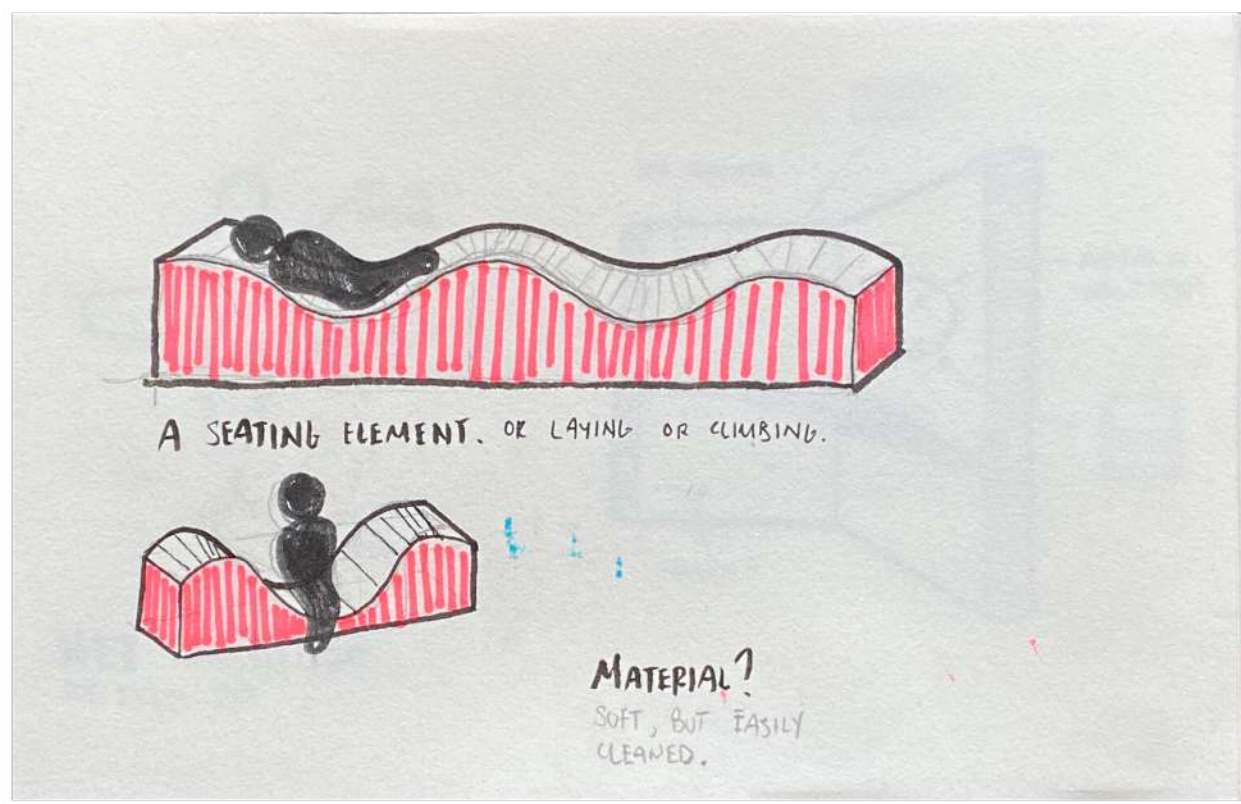 A SEATING ELEMENT. OR LAYING OR CLIMBING.
MATERIAL?
SOFT, BUT EASILY
CLEANED.